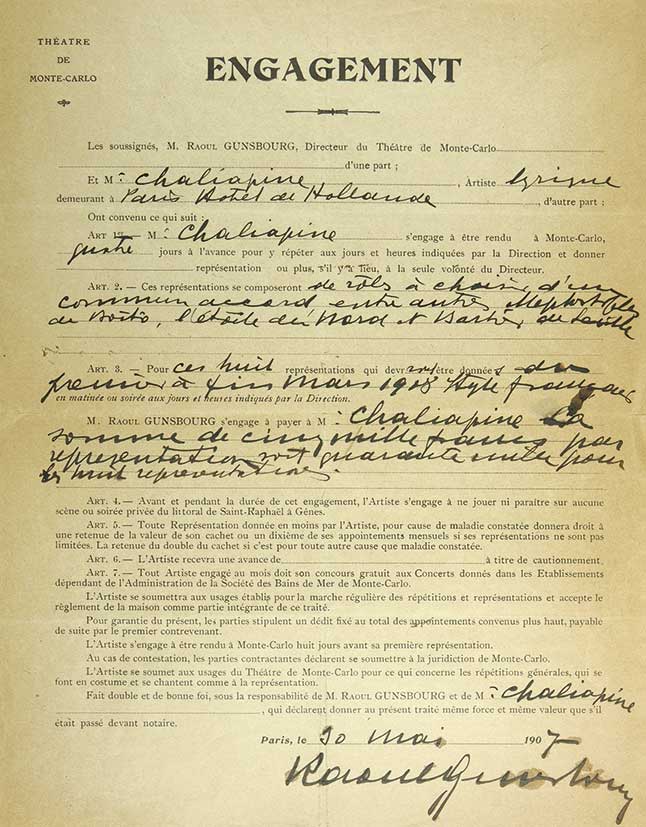 THÉATRE
DE
MONTE-CARLO
ENGAGEMENT
Les soussignés, M. RAOUL GUNSBOURG, Directeur du Théâtre de Monte-Carlo
d'une part ;
Et M. Chaliapine, Artiste lyrique
demeurant à Paris Hotel de Hollande, d'autre part ;
Ont convenu ce qui suit :
ART 1er M. Chaliapine s'engage à être rendu à Monte-Carlo,
jours à l'avance pour y répéter aux jours et heures indiquées par la Direction et donner
représentation ou plus, s'il y a lieu, à la seule volonté du Directeur.
ART. 2. — Ces représentations se composeront de rôls à choisir d'un
commun accord entre autres Mephistofele
de Boito, l'étoile du Nord et Barbier de Seville
ART. 3. — Pour ces huit représentations qui devront être données du
premier à fin Mars 1908 style français
en matinée ou soirée aux jours et heures indiqués par la Direction.
M. RAOUL GUNSBOURG s'engage à payer à M. Chaliapine la
somme de cinq mille francs par
representation soit quarante mille pour
les huit representations.
ART. 4. — Avant et pendant la durée de cet engagement, l'Artiste s'engage à ne jouer ni paraître sur aucune
scène ou soirée privée du littoral de Saint-Raphaël à Gênes.
ART. 5. — Toute Représentation donnée en moins par l'Artiste, pour cause de maladie constatée donnera droit à
une retenue de la valeur de son cachet ou un dixième de ses appointements mensuels si ses représentations ne sont pas
limitées. La retenue du double du cachet si c'est pour toute autre cause que maladie constatée.
ART. 6. — L'Artiste recevra une avance de à titre de cautionnement.
ART. 7. — Tout Artiste engagé au mois doit son concours gratuit aux Concerts donnés dans les Etablissements
dépendant de l'Administration de la Société des Bains de Mer de Monte-Carlo.
L'Artiste se soumettra aux usages établis pour la marche régulière des répétitions et représentations et accepte le
règlement de la maison comme partie intégrante de ce traité.
Pour garantie du présent, les parties stipulent un dédit fixé au total des appointements convenus plus haut, payable
de suite par le premier contrevenant.
L'Artiste s'engage à être rendu à Monte-Carlo huit jours avant sa première représentation.
Au cas de contestation, les parties contractantes déclarent se soumettre à la juridiction de Monte-Carlo.
L'Artiste se soumet aux usages du Théâtre de Monte-Carlo pour ce qui concerne les répétitions générales, qui se
font en costume et se chantent comme à la représentation.
Fait double et de bonne foi, sous la responsabilité de M. RAOUL GUNSBOURG et de M. Chaliapine
, qui déclarent donner au présent traité même force et même valeur que s'il
était passé devant notaire.
Paris, le 30 Mai 1907
Raoul Gunsbourg